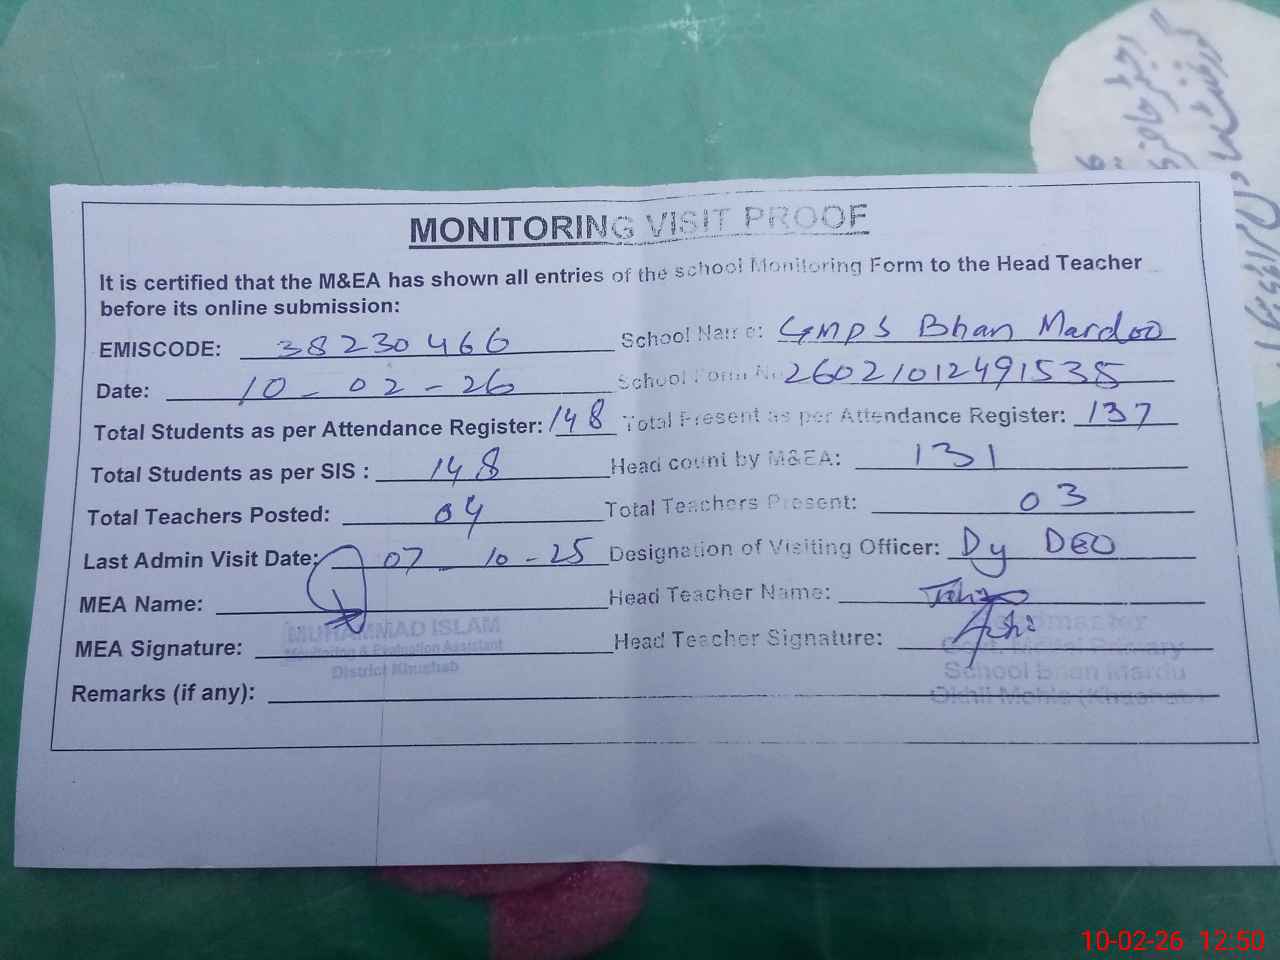 MONITORING VISIT PROOF
It is certified that the M&EA has shown all entries of the school Monitoring Form to the Head Teacher
before its online submission:
EMISCODE: 38230466 School Name: GMPS Bhan Mardoo
Date: 10-02-26 School Form No 26021012491535
Total Students as per Attendance Register: 148 Total Present as per Attendance Register: 137
Total Students as per SIS : 148 Head count by M&EA: 131
Total Teachers Posted: 04 Total Teachers Present: 03
Last Admin Visit Date: 07-10-25 Designation of Visiting Officer: Dy DEO
MEA Name: Head Teacher Name:
MUHAMMAD ISLAM
MEA Signature: Head Teacher Signature:
Monitoring & Evaluation Assistant
District Khushab
Headmaster
Primary
School Bhan Mardu
(Khushab)
Remarks (if any):
10-02-26 12:50